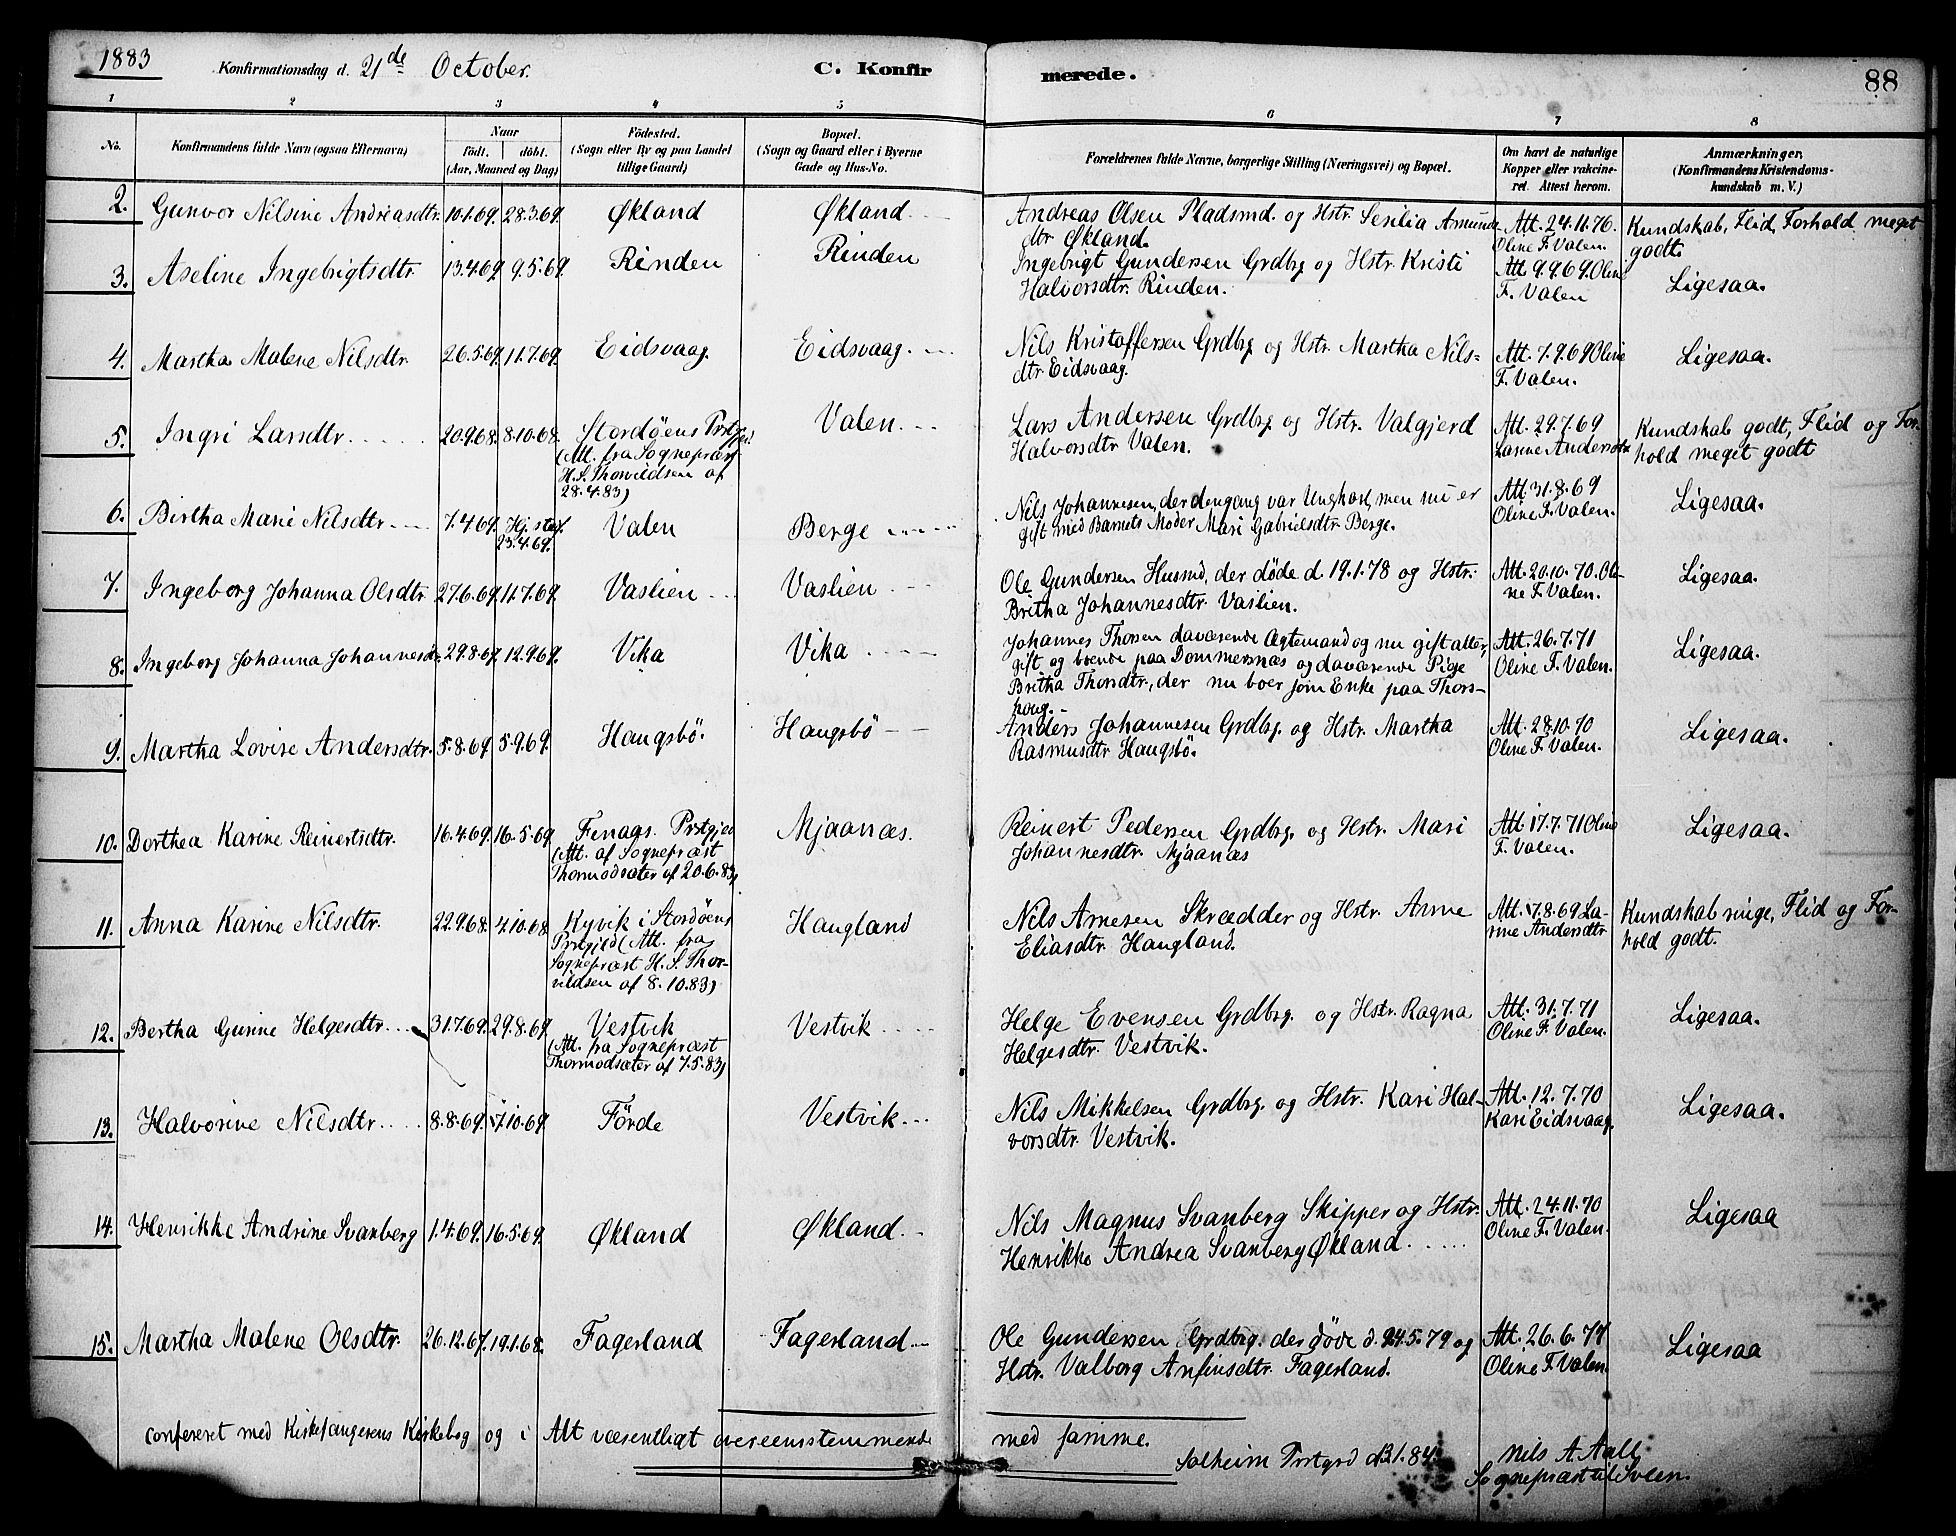 1883
Konfirmationsdag d. 21de October. C. Konfirmerede. 88
1 2 3 4 5 6 7 8
No. Konfirmandens fulde Navn (ogsaa Efternavn) Naar födt. döbt. (Aar, Maaned og Dag) Födested. (Sogn eller By og paa Landet tillige Gaard) Bopæl. (Sogn og Gaard eller i Byerne Gade og Hus-No. Forældrenes fulde Navne, borgerlige Stilling (Næringsvei) og Bopæl. Om havt de naturlige Kopper eller vakcineret. Attest herom. Anmærkninger. (Konfirmandens Kristendomskundskab m. V.)
2. Gunvor Nilsine Andreasdtr. 10.1.69. 28.3.69. Økland Økland Andreas Olsen Pladsmd. og Hstr. Sesilia Amunds- Att. 24.11.76. Kundskab, Flid, Forhold meget
dtr. Økland. Oline F. Valen. godt.
3. Aseline Ingebrigtsdtr. 13.4.69. 9.5.69. Rinden Rinden Ingebrigt Gundersen Grdbrg. og Hstr. Kristi Att. 9.9.69. Oline
Halvorsdtr. Rinden. F. Valen Ligesaa.
4. Martha Malene Nilsdtr. 26.5.69. 11.7.69. Eidsvaag. Eidsvaag. Nils Kristoffersen Grdbrg. og Hstr. Martha Nils- Att. 7.9.69 Oline Ligesaa.
dtr. Eidsvaag. F. Valen.
5. Ingri Larsdtr. 20.9.68. 8.10.68. Stordöens Prstgjd. Valen Lars Andersen Grdbrg. og Hstr. Valgjerd Att. 29.7.69 Kundskab godt, Flid og For-
(Att. fra Sognepræst Halvorsdtr. Valen. Larine Andersdtr. hold meget godt
H. S. Thorvildsen af
28.4.83)
6. Birtha Mari Nilsdtr. 7.4.69. Hj. st. af 23.4.69. Valen Berge Nils Johannesen, der dengang var Ungkarl, men nu er Att. 31.8.69 Ligesaa.
gift med Barnets Moder Mari Gabrielsdtr. Berge. Oline F. Valen.
7. Ingeborg Johanna Olsdtr. 27.6.69. 11.7.69. Vaslien Vaslien Ole Gundersen Husmd, der døde d. 19.1.78 og Hstr. Att. 20.10.70. Oli- Ligesaa.
Britha Johannesdtr. Vaslien. ne F. Valen.
8. Ingeborg Johanna Johannesdtr. 29.8.69. 12.9.69. Vika Vika Johannes Thorsen daværende Ægtemand og nu gift atter, Att. 26.7.71 Ligesaa.
gift og boende paa Dommersnæs og daværende Pige Oline F. Valen.
Britha Thorsdtr., der nu boer som Enke paa Thors-
houg.
9. Martha Lovise Andersdtr. 5.8.69. 5.9.69. Haugsbö. Haugsbö Anders Johannesen Grdbrg. og Hstr. Martha Att. 28.10.70 Ligesaa.
Rasmusdtr. Haugsbö. Oline F. Valen.
10. Dorthea Karine Reinertsdtr. 16.4.69. 16.5.69. Finaas Prstgjld Mjaanæs. Reinert Pedersen Grdbrg. og Hstr. Mari Att. 17.7.71 Oline Ligesaa.
(Att. af Sognepræst Johannesdtr. Mjaanæs F. Valen.
Thormodsæter af 20.6.83)
11. Anna Karine Nilsdtr. 22.9.68. 4.10.68. Kyvik i Stordöens Haugland Nils Arnesen Skrædder og Hstr. Anne Att. 17.8.69 La- Kundskab nuge, Flid og For-
Prstgjld (Att. fra Eliasdtr. Haugland. rine Andersdtr. hold godt.
Sognepræst H. S. Thor-
vildsen af 8.10.83)
12. Bertha Gurine Helgesdtr. 31.7.69. 29.8.69. Vestvik Vestvik Helge Evensen Grdbrg. og Hstr. Ragna Att. 31.7.71 Ligesaa.
(Att. fra Sognepræst Helgesdtr. Vestvik. Oline F. Valen.
Thormodsæter af 7.5.83)
13. Halvorine Nilsdtr. 8.8.69. 17.10.69. Förde Vestvik Nils Mikkelsen Grdbrg. og Hstr. Kari Hal- Att. 12.7.70 Ligesaa.
vorsdtr. Vestvik. Kari Eidsvaag.
14. Henrikke Andrine Svanberg 1.4.69. 16.5.69. Økland Økland Nils Magnus Svanberg Skipper og Hstr. Att. 24.11.70 Ligesaa
Henrikke Andrea Svanberg Økland. Oline F. Valen.
15. Martha Malene Olsdtr. 26.12.67. 19.1.68. Fagerland Fagerland Ole Gundersen Grdbrg. der døde d. 24.5.79 og Att. 26.6.77 Ligesaa
Hstr. Valborg Anfinsdtr. Fagerland. Oline F. Valen
confereret med Kirkesangerens Kirkebog og i Alt væsentligt overeensstemmende med samme.
Solheim Prstgrd d. 13.1.84. Nils A. Aall
Sognepræst til Sveen.